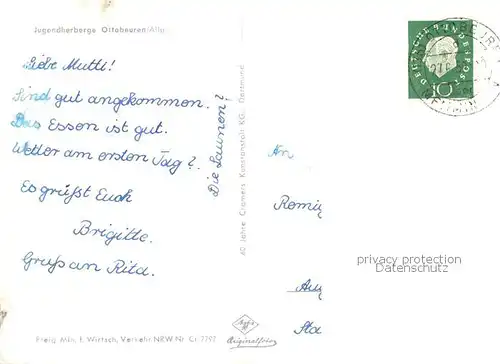 Jugendherberge Ottobeuren/Allg.
Liebe Mutti!
Sind gut angekommen.
Das Essen ist gut.
Wetter am ersten Tag?
Es grüßt Euch
Brigitte.
Gruß an Rita.
Die Launen?
60 Jahre Cramers Kunstanstalt KG. Dortmund
DEUTSCHE BUNDESPOST
10
An
privacy protection
Datenschutz
Agfa
Originalfoto
Freig. Min. f. Wirtsch. Verkehr NRW Nr. Cr 7797